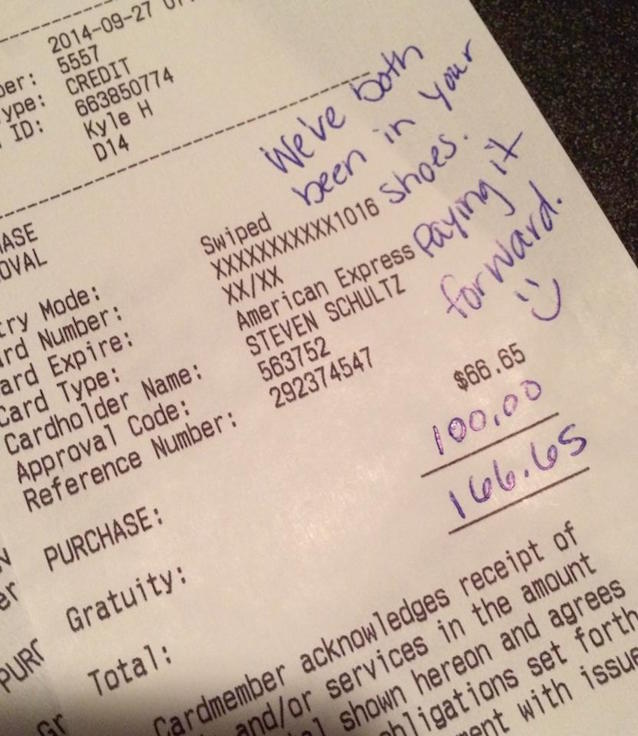 2014-09-27
5557
ype: CREDIT
ID: 663850774
Kyle H
D14
We've both
been in your
shoes.
Paying it
forward.
Swiped
XXXXXXXXXXX1016
Card Expire: XX/XX
Card Type: American Express
Cardholder Name: STEVEN SCHULTZ
Approval Code: 563752
Reference Number: 292374547
PURCHASE: $66.65
Gratuity: 100.00
Total: 166.65
Cardmember acknowledges receipt of
and/or services in the amount
shown hereon and agrees
obligations set forth
with issue